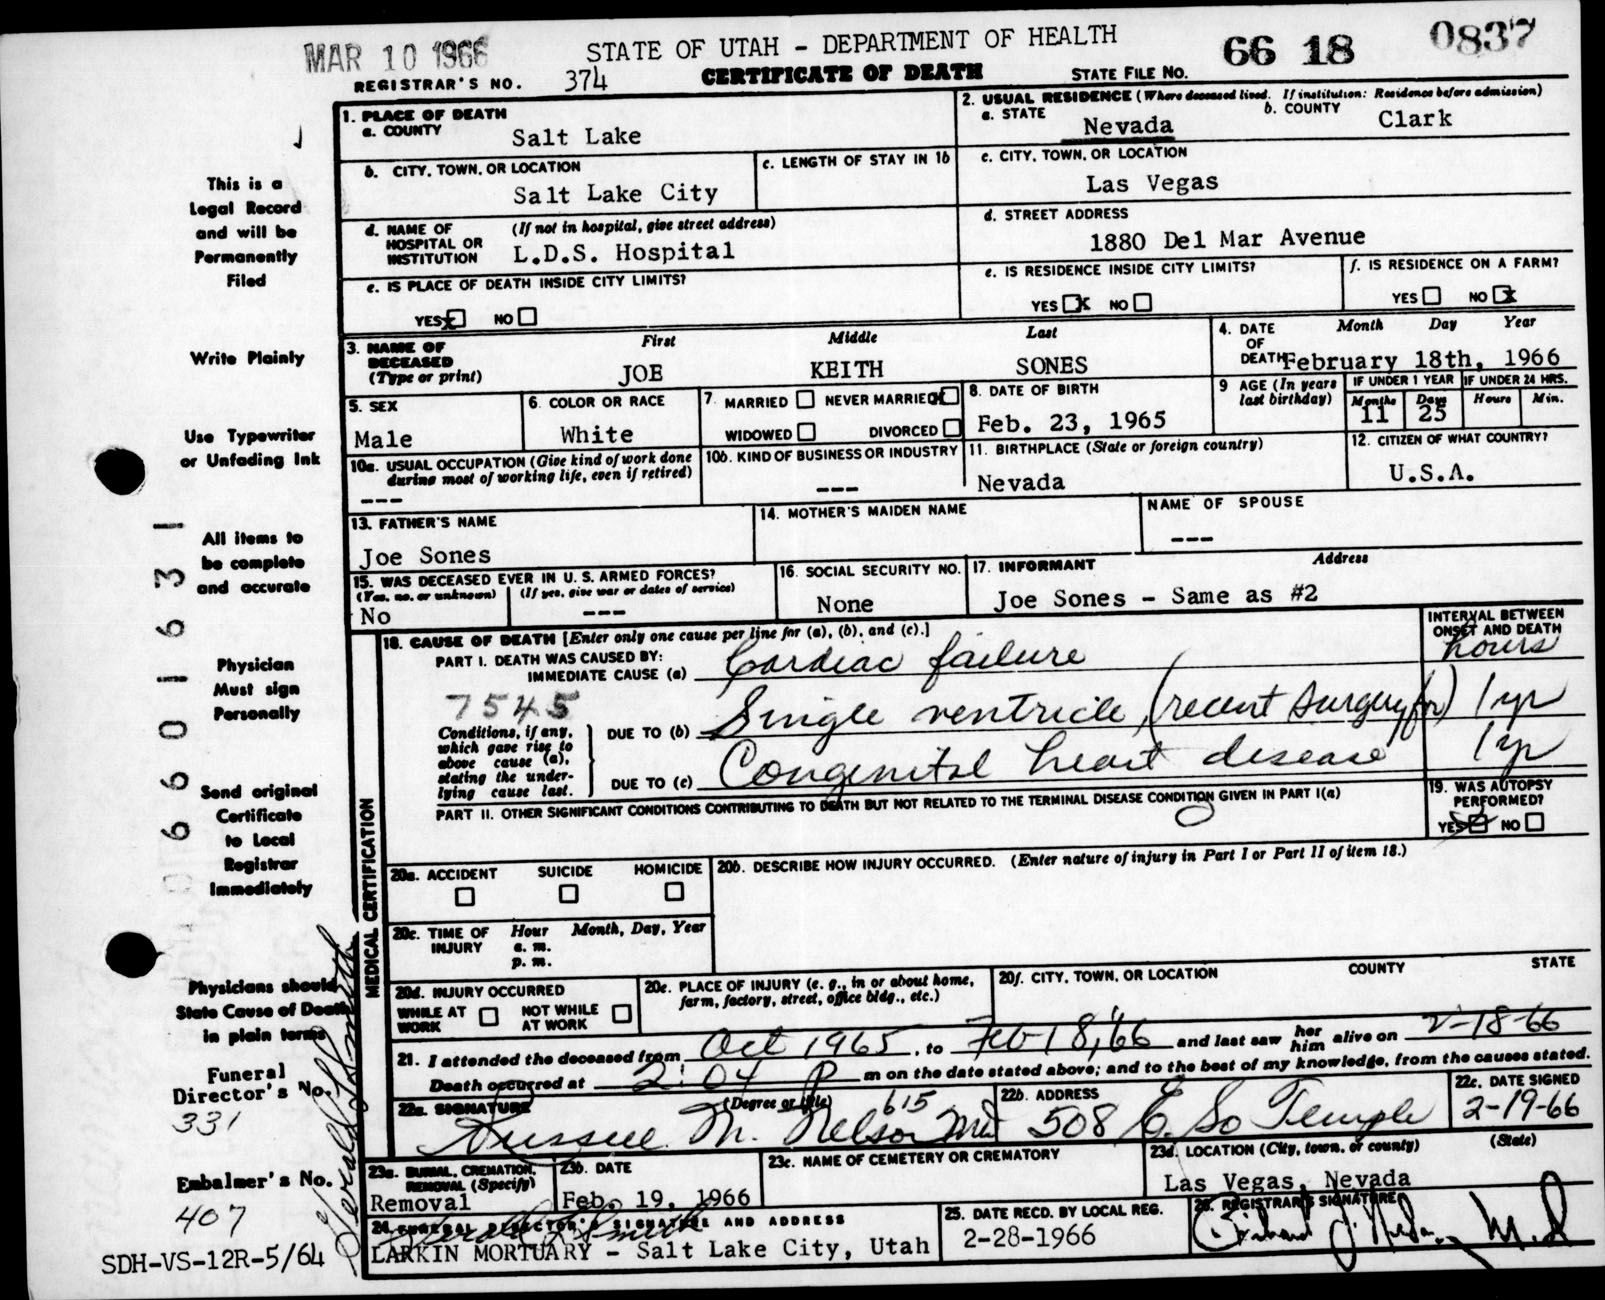 MAR 10 1966
STATE OF UTAH - DEPARTMENT OF HEALTH
66 18 0837
REGISTRAR'S NO. 374
CERTIFICATE OF DEATH
STATE FILE NO.
1. PLACE OF DEATH
a. COUNTY
Salt Lake
2. USUAL RESIDENCE (Where deceased lived. If institution: Residence before admission)
a. STATE
Nevada
b. COUNTY
Clark
b. CITY, TOWN, OR LOCATION
Salt Lake City
c. LENGTH OF STAY IN 1b
c. CITY, TOWN, OR LOCATION
Las Vegas
d. NAME OF HOSPITAL OR INSTITUTION
(If not in hospital, give street address)
L.D.S. Hospital
d. STREET ADDRESS
1880 Del Mar Avenue
e. IS PLACE OF DEATH INSIDE CITY LIMITS?
YES x NO
e. IS RESIDENCE INSIDE CITY LIMITS?
YES X NO
f. IS RESIDENCE ON A FARM?
YES NO X
3. NAME OF DECEASED
(Type or print)
First Middle Last
JOE KEITH SONES
4. DATE OF DEATH
Month Day Year
February 18th, 1966
5. SEX
Male
6. COLOR OR RACE
White
7. MARRIED NEVER MARRIED X
WIDOWED DIVORCED
8. DATE OF BIRTH
Feb. 23, 1965
9 AGE (In years last birthday)
IF UNDER 1 YEAR
Months Days
11 25
IF UNDER 24 HRS.
Hours Min.
10a. USUAL OCCUPATION (Give kind of work done during most of working life, even if retired)
---
10b. KIND OF BUSINESS OR INDUSTRY
---
11. BIRTHPLACE (State or foreign country)
Nevada
12. CITIZEN OF WHAT COUNTRY?
U.S.A.
13. FATHER'S NAME
Joe Sones
14. MOTHER'S MAIDEN NAME
NAME OF SPOUSE
---
15. WAS DECEASED EVER IN U. S. ARMED FORCES?
(Yes, no, or unknown) (If yes, give war or dates of service)
No ---
16. SOCIAL SECURITY NO.
None
17. INFORMANT Address
Joe Sones - Same as #2
MEDICAL CERTIFICATION
18. CAUSE OF DEATH [Enter only one cause per line for (a), (b), and (c).]
INTERVAL BETWEEN ONSET AND DEATH
PART I. DEATH WAS CAUSED BY:
IMMEDIATE CAUSE (a) Cardiac failure hours
7545
Conditions, if any, which gave rise to above cause (a), stating the underlying cause last.
DUE TO (b) Single ventricle, (recent surgery for) 1 yr
DUE TO (c) Congenital heart disease 1 yr
PART II. OTHER SIGNIFICANT CONDITIONS CONTRIBUTING TO DEATH BUT NOT RELATED TO THE TERMINAL DISEASE CONDITION GIVEN IN PART I(a)
19. WAS AUTOPSY PERFORMED?
YES NO
20a. ACCIDENT SUICIDE HOMICIDE
20b. DESCRIBE HOW INJURY OCCURRED. (Enter nature of injury in Part I or Part II of item 18.)
20c. TIME OF INJURY
Hour Month, Day, Year
a. m.
p. m.
20d. INJURY OCCURRED
WHILE AT WORK NOT WHILE AT WORK
20e. PLACE OF INJURY (e. g., in or about home, farm, factory, street, office bldg., etc.)
20f. CITY, TOWN, OR LOCATION COUNTY STATE
21. I attended the deceased from Oct 1965, to Feb 18, '66 and last saw her him alive on 2-18-66
Death occurred at 2:04 P m on the date stated above; and to the best of my knowledge, from the causes stated.
22a. SIGNATURE (Degree or title) 615
Russell M. Nelson MD
22b. ADDRESS
508 E. So Temple
22c. DATE SIGNED
2-19-66
23a. BURIAL, CREMATION, REMOVAL (Specify)
Removal
23b. DATE
Feb. 19, 1966
23c. NAME OF CEMETERY OR CREMATORY
23d. LOCATION (City, town, or county) (State)
Las Vegas, Nevada
24. FUNERAL DIRECTOR'S SIGNATURE AND ADDRESS
LARKIN MORTUARY - Salt Lake City, Utah
25. DATE RECD. BY LOCAL REG.
2-28-1966
26. REGISTRAR'S SIGNATURE
This is a
Legal Record
and will be
Permanently
Filed
Write Plainly
Use Typewriter
or Unfading Ink
All items to
be complete
and accurate
Physician
Must sign
Personally
Send original
Certificate
to Local
Registrar
Immediately
Physicians should
State Cause of Death
in plain terms
Funeral
Director's No.
331
Embalmer's No.
407
SDH-VS-12R-5/64
6601631